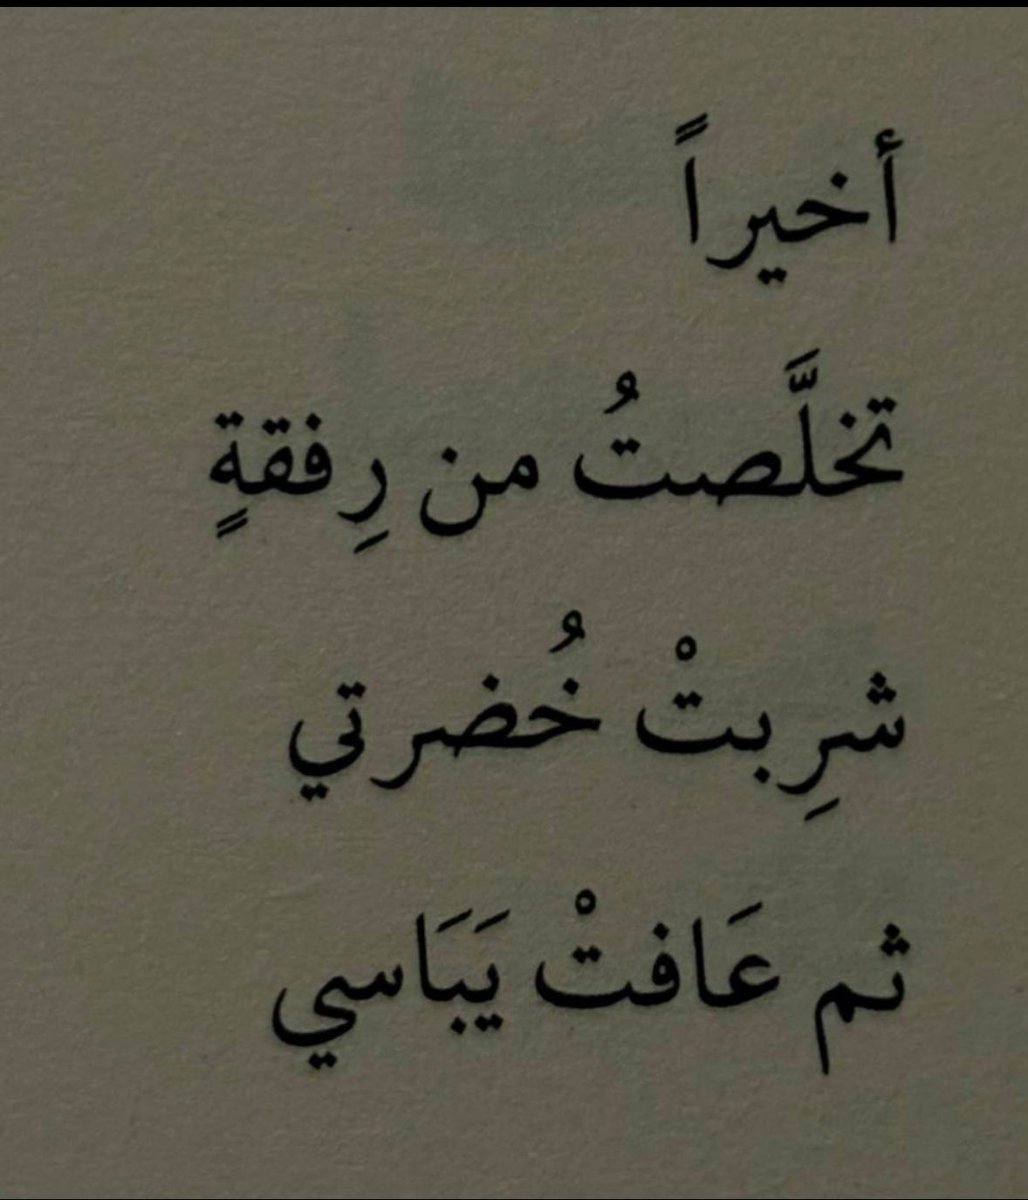 أخيراً
تخلَّصتُ من رِفقةٍ
شرِبتْ خُضرتي
ثم عَافتْ يَبَاسي